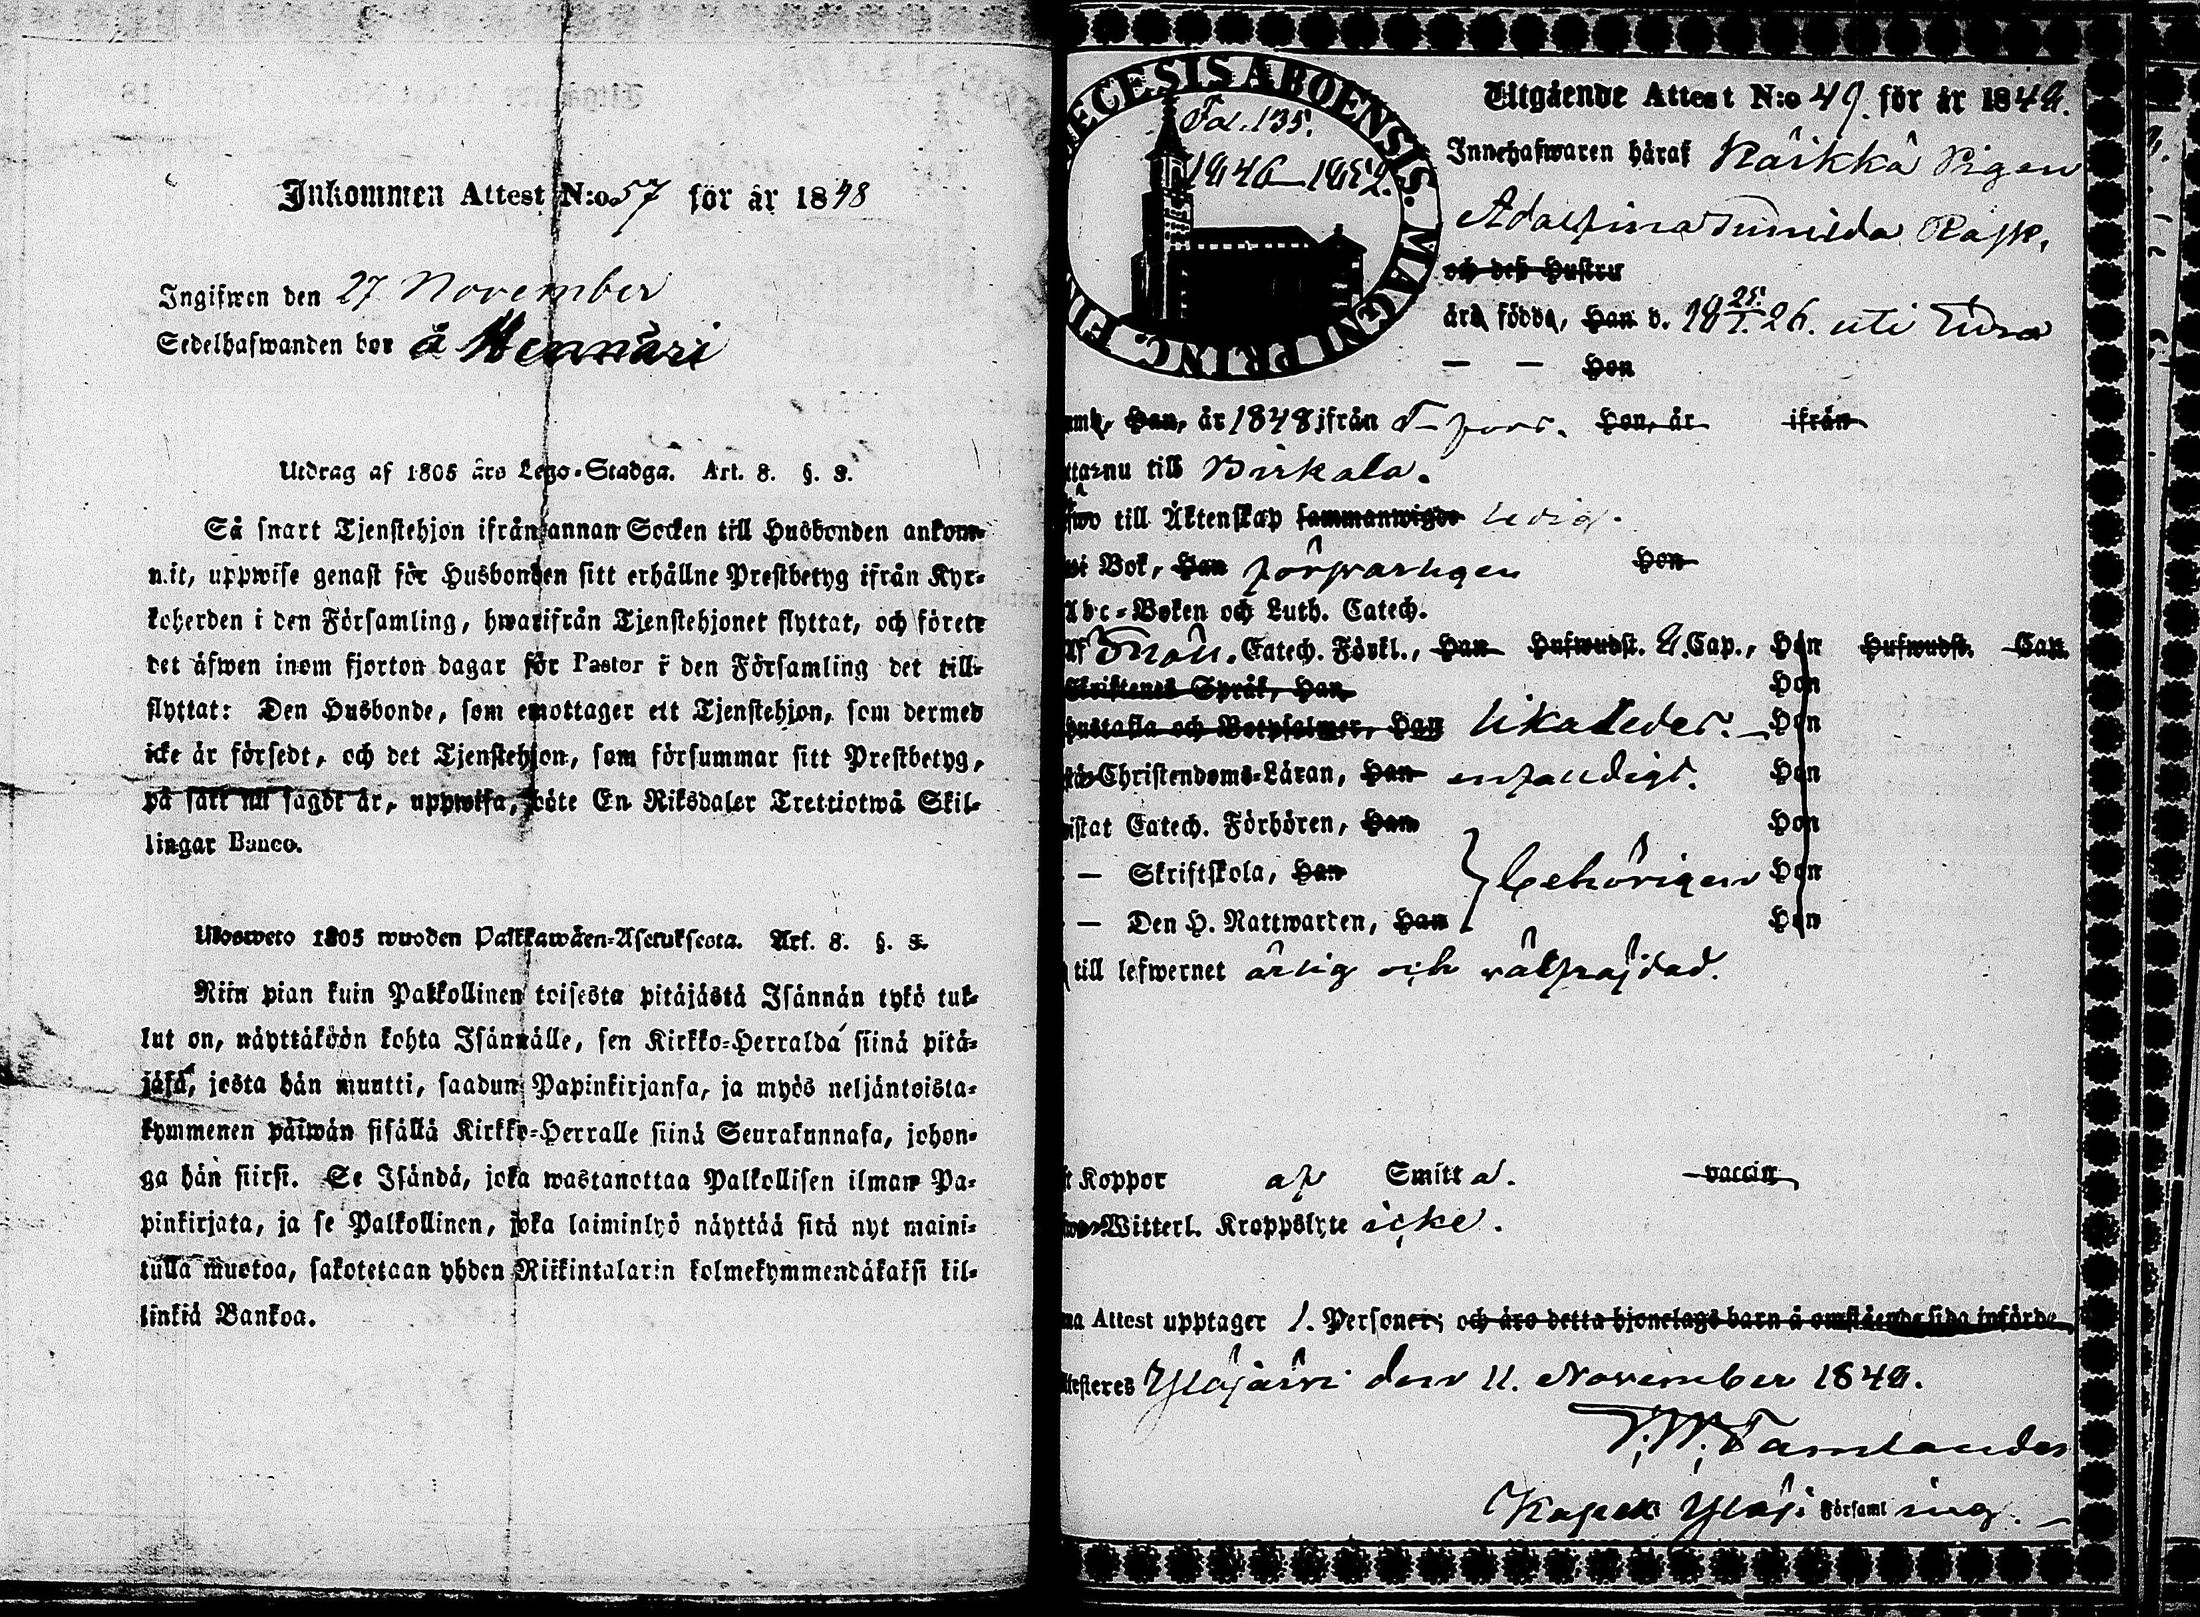 Inkommen Attest N:o 57 för år 1848
Ingifwen den 27 November
Sedelhafwanden bor å Hennäri
Utdrag af 1805 års Lego-Stadga. Art. 8. §. 3.
Så snart Tjenstehjon ifrån annan Socken till Husbonden ankom-
mit, uppwise genast för Husbonden sitt erhållne Prestbetyg ifrån Kyr-
koherden i den Församling, hwarifrån Tjenstehjonet flyttat, och förete
det äfwen inom fjorton dagar för Pastor i den Församling det till-
flyttat: Den Husbonde, som emottager ett Tjenstehjon, som dermed
icke är försedt, och det Tjenstehjon, som försummar sitt Prestbetyg,
på sätt nu sagdt är, uppwisa, böte En Riksdaler Trettiotwå Skil-
lingar Banco.
Ulosweto 1805 wuoden Palkkawäen-Asetuksesta. Art. 8. §. 3.
Niin pian kuin Palkollinen toisesta pitäjästä Isännän tykö tul-
lut on, näyttäköön kohta Isännälle, sen Kirkko-Herralda siinä pitä-
jäsä, josta hän muutti, saadun Papinkirjansa, ja myös neljäntoista-
kymmenen päiwän sisällä Kirkko-Herralle siinä Seurakunnasa, johon-
ga hän siirsi. Se Isändä, joka wastanottaa Palkollisen ilman Pa-
pinkirjata, ja se Palkollinen, joka laiminlyö näyttää sitä nyt maini-
tulla muotoa, sakotetaan yhden Riikintalarin kolmekymmendäkaksi kil-
linkiä Bankoa.
ECESIS ABOENSIS. MAGNI PRINC. FIN
Fol. 135.
1846–1852.
Utgående Attest N:o 49. för år 1848.
Innehafwaren häraf Räikkä Pigan
Adolfina
och deß Hustru
äro födde, Han d. 18 25/1. 26. uti Eura
— — Hon
Han, år 1848 ifrån T-fors. Hon, år ifrån
nu till Birkala.
till Äktenskap sammanwigde ledig.
i Bok, Han försvarligen Hon
Abc-Boken och Luth. Catech.
af Catech. Förkl., Han Hufwudst. Cap., Hon Hufwudst. Cap.
Skriftenes Språk, Han Hon
hustafla och Botpsalmer, Han likaledes. — Hon
Christendoms-Läran, Han enfaldigt. Hon
istat Catech. Förhören, Han Hon
— Skriftskola, Han behörigen Hon
— Den H. Nattwarden, Han Hon
till lefwernet ärlig och välfräjdad.
t Koppor af Smitta. vaccin
Witterl. Kroppslyte icke.
na Attest upptager 1. Personer; och äro detta hjonelags barn å omstående sida införde
ttesteres Ylöjärvi den 11. November 1848.
Kapell Ylöj. Församling.